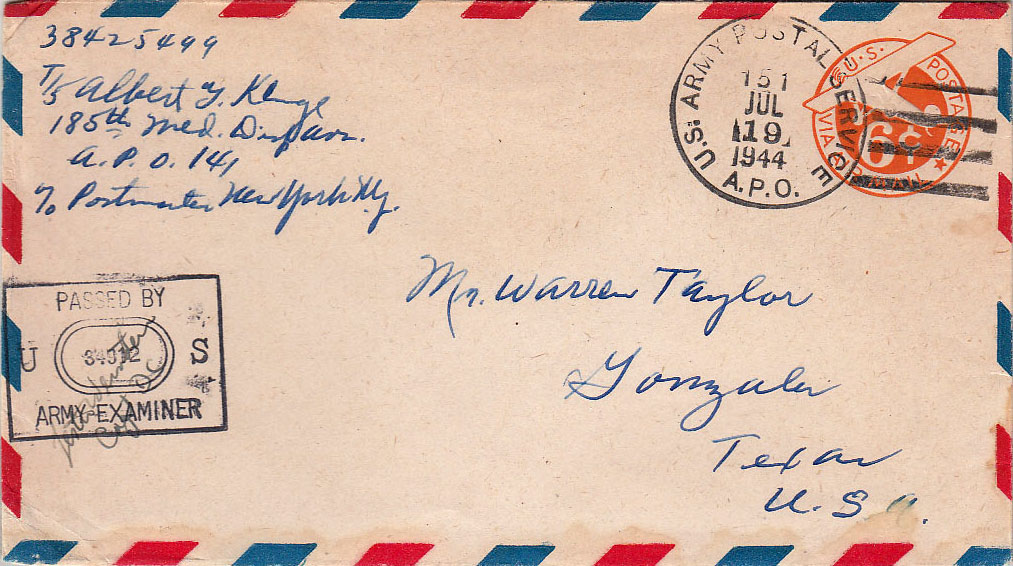 38425499
T/5 Albert Y. Kluge
185th Med. Disp. Avn.
A.P.O. 141
℅ Postmaster New York N.Y.
U.S. ARMY POSTAL SERVICE
151
JUL
19
1944
A.P.O.
U.S. POSTAGE
6¢
VIA AIR MAIL
PASSED BY
U S
ARMY EXAMINER
Mr. Warren Taylor
Gonzales
Texas
U.S.A.